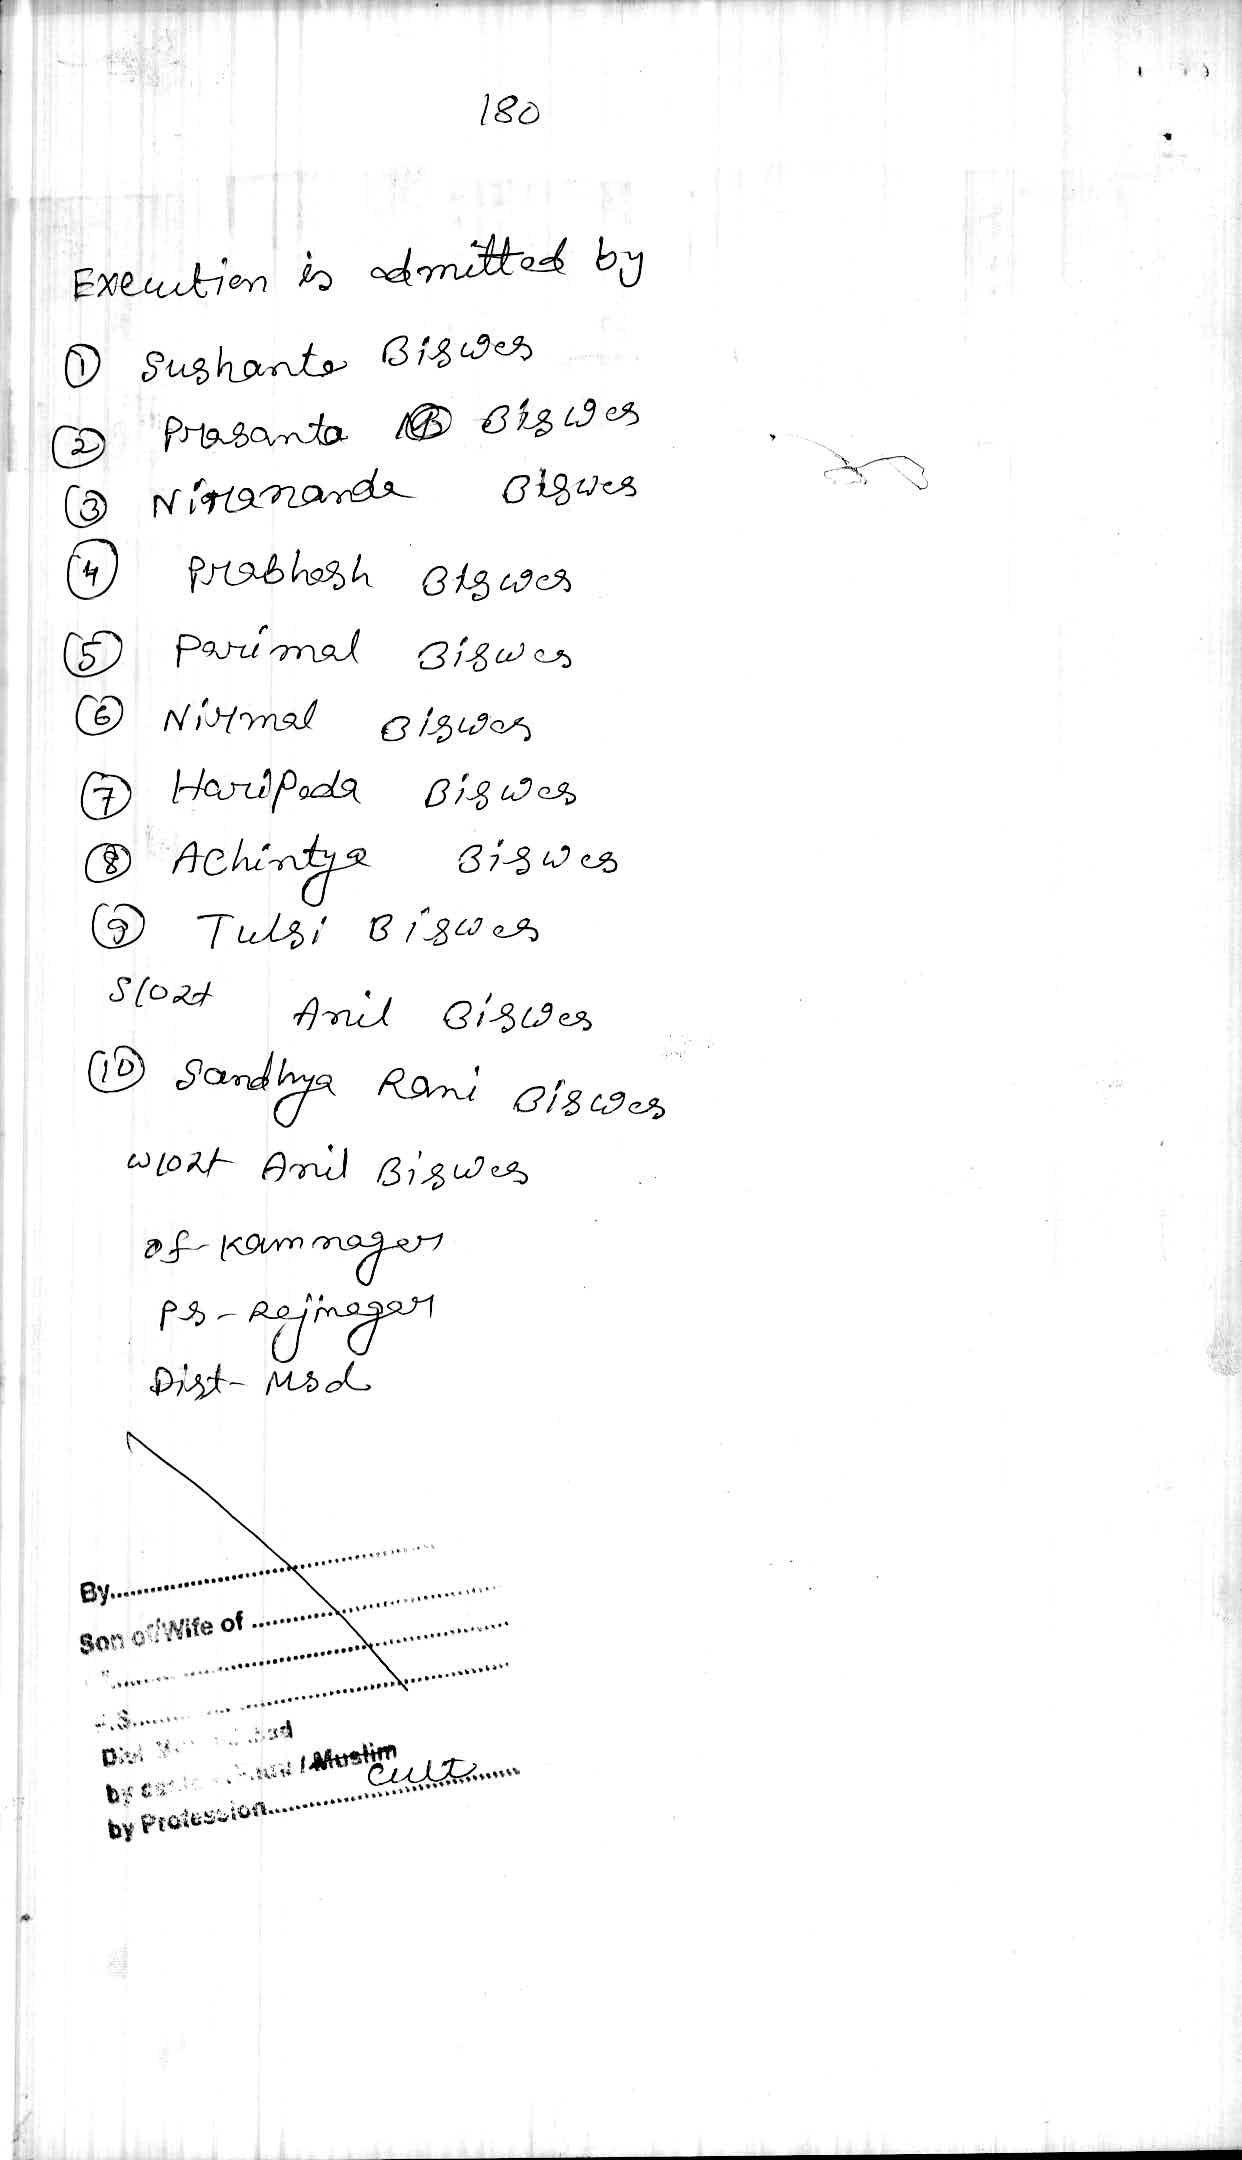 180
Execution is admitted by
① Sushanta Biswas
② Prasanta Biswas
③ Nirananda Biswas
④ Prabhash Biswas
⑤ Parimal Biswas
⑥ Nirmal Biswas
⑦ Haripada Biswas
⑧ Achintya Biswas
⑨ Tulsi Biswas
S/o Lt Anil Biswas
⑩ Sandhya Rani Biswas
W/o Lt Anil Biswas
of- Kamnagar
PS - Rejinagar
Dist - Msd
By....................
Son of/Wife of ....................
Dist
by / Muslim
by Profession.......... cult